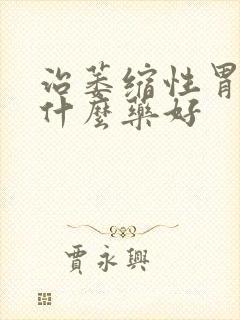 治萎缩性胃
什麼藥好
賈永興